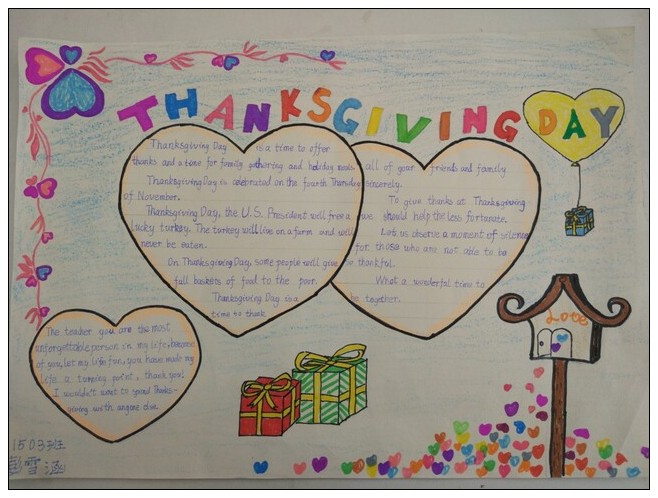 THANKSGIVING DAY
Thanksgiving Day is a time to offer
thanks and a time for family gathering and holiday meals.
Thanksgiving Day is celebrated on the fourth Thursday
of November.
Thanksgiving Day, the U.S. President will free a
lucky turkey. The turkey will live on a farm and will
never be eaten.
On Thanksgiving Day, some people will give
full baskets of food to the poor.
Thanksgiving Day is a
time to thank
all of your friends and family
sincerely.
To give thanks at Thanksgiving
we should help the less fortunate.
Let us observe a moment of silence
for those who are not able to be
be thankful.
What a wonderful time to
be together.
Love
The teacher you are the most
unforgettable person in my life, because
of you, let my life fun, you have made my
life a turning point, thank you!
I wouldn't want to spend Thanks-
giving with anyone else.
1503班
彭雪涵